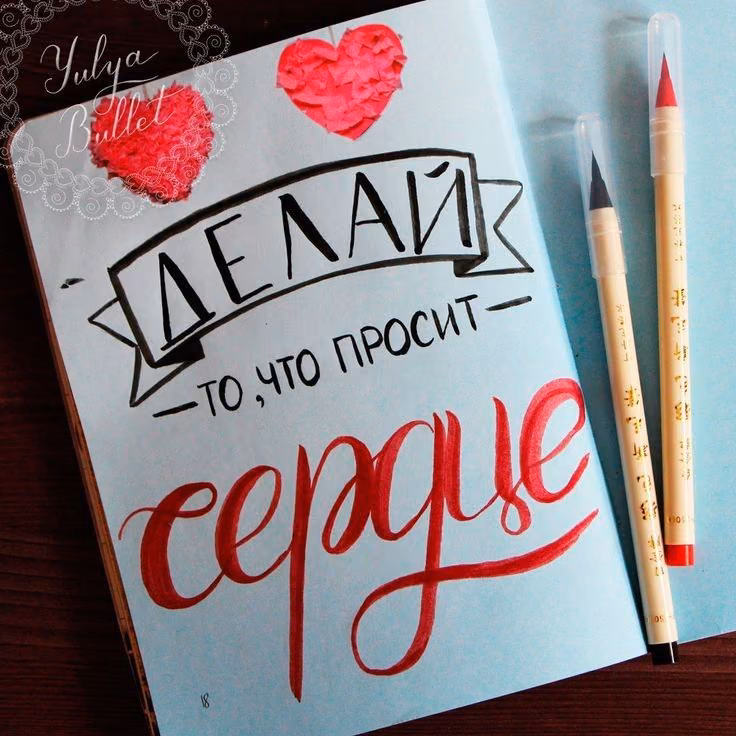 Yulya
Bullet
ДЕЛАЙ
— ТО, ЧТО ПРОСИТ —
сердце
18